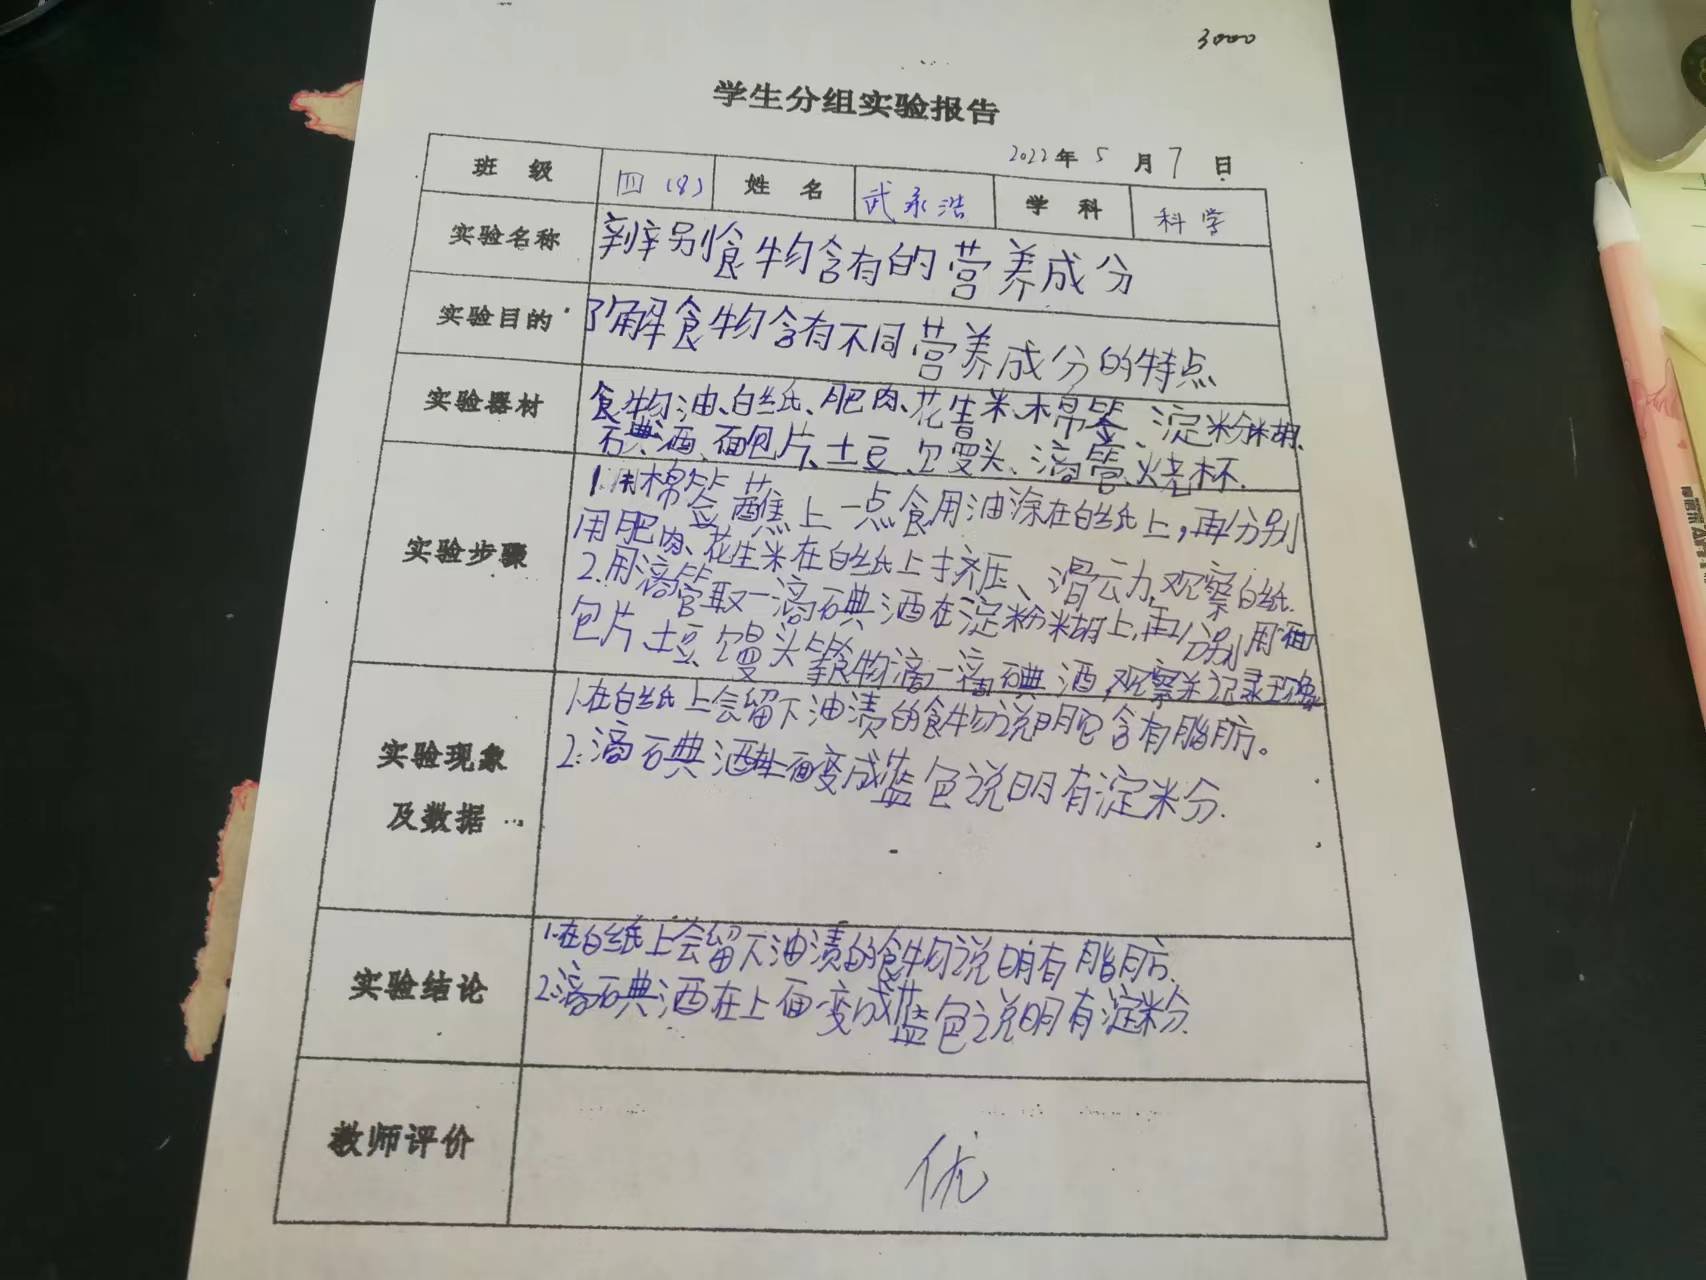 3000
学生分组实验报告
2022年5月7日
班 级 四(8) 姓 名 武永浩 学 科 科学
实验名称 辨别食物含有的营养成分
实验目的 了解食物含有不同营养成分的特点
实验器材 食物油、白丝纸、肥肉、花生米、棉签、淀粉糊、
碘酒、面包片、土豆、馒头、滴管、烧杯.
实验步骤
1.用棉签蘸上一点食用油涂在白丝纸上,再分别
用肥肉、花生米在白丝纸上挤压、滑动,观察白纸.
2.用滴管取一滴碘酒在淀粉糊上,再分别用面
包片、土豆、馒头等食物滴一滴碘酒,观察并记录现象
实验现象
及数据
1.在白丝纸上会留下油渍的食物说明它含有脂肪。
2.滴碘酒在上面变成蓝色说明有淀粉.
实验结论
1.在白丝纸上会留下油渍的食物说明有脂肪.
2.滴碘酒在上面变成蓝色说明有淀粉.
教师评价 优